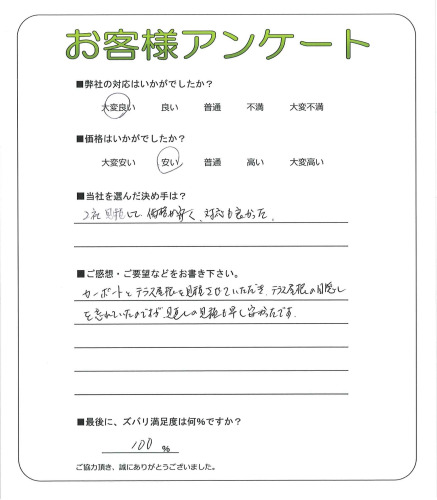 お客様アンケート
■弊社の対応はいかがでしたか?
大変良い 良い 普通 不満 大変不満
■価格はいかがでしたか?
大変安い 安い 普通 高い 大変高い
■当社を選んだ決め手は?
2社見積して、価格が安く、対応も良かった。
■ご感想・ご要望などをお書き下さい。
カーポートとテラス屋根を見積させていただき、テラス屋根の目隠し
をきれていたのですが 見直しの見積も早く
■最後に、ズバリ満足度は何%ですか?
100 %
ご協力頂き、誠にありがとうございました。